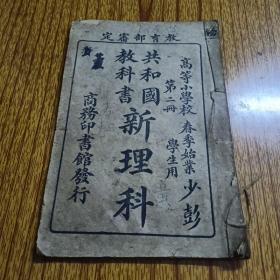 教育部審定
高等小學校 春季始業
第二冊 學生用
共和國
教科書
新理科
商務印書館發行
少彭